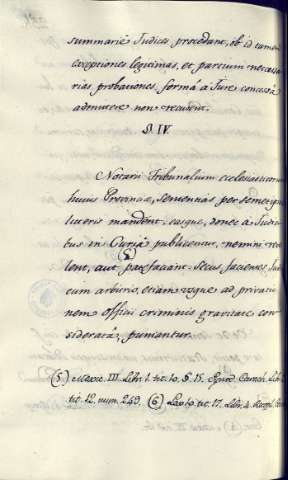 summarie Judices procedant, ob id tamen
exceptiones legitimas, et partium necessa-
rias probationes, formâ a Jure concessâ
admittere non recusent.
§. IV.
Notarii Tribunalium ecclesiasticorum
huius Provinciæ, sententias per semet ipsos
litteris mandent, easque, donec a Judici-
bus in Curiâ publicentur, nemini reve-
lent, aut (6) patefaciant. Secus facientes, Judi-
cum arbitrio, etiam usque ad privatio-
nem officii criminis gravitate con-
sideratâ, puniantur.
(5) Mexic. III. Libr. 1. tit. 10. §. 15.
tit. 12. num. 243. (6) tit. 17. Libr. 2.